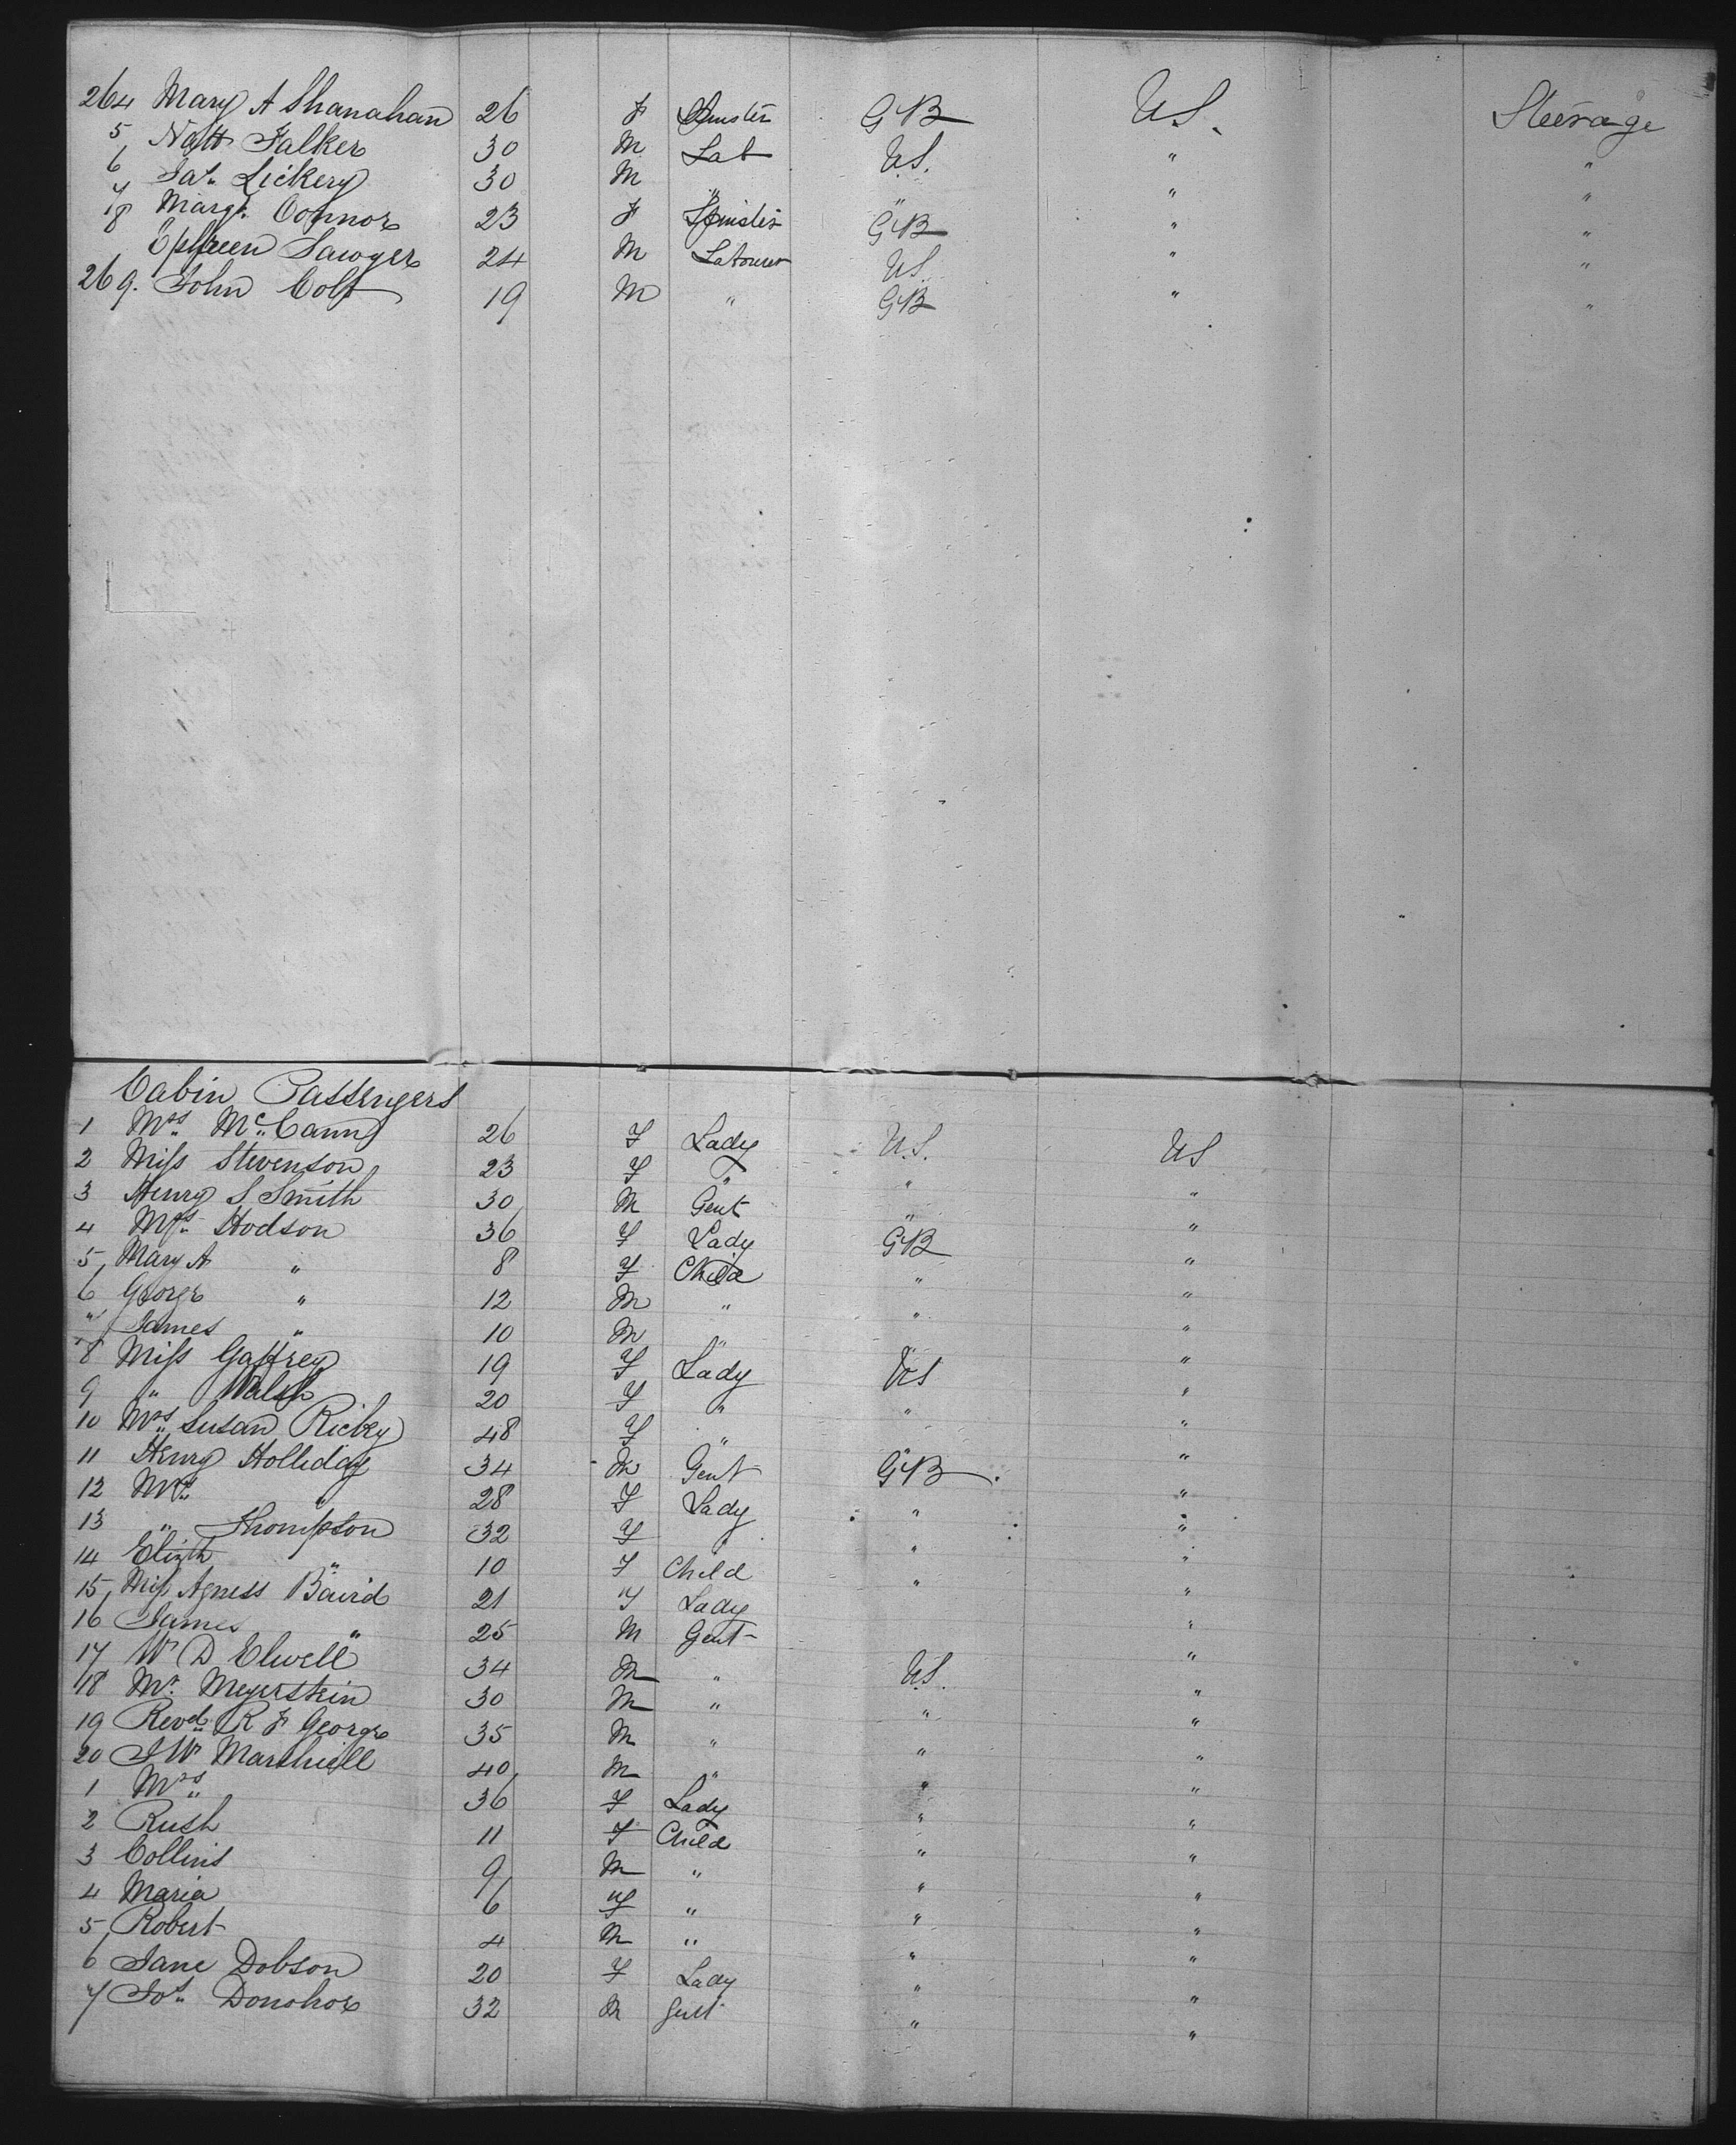 264 Mary A Shanahan 26 F Spinster GB U.S. Steerage
5 Natt Falker 30 M Lab U.S. " "
6 Jas. Lickery 30 M " " " "
7 Margt. Connor 23 F Spinster GB " "
8 Ephreen Sawyer 24 M Labourer US " "
269. John Colt 19 M " GB " "
Cabin Passengers
1 Mrs. McCann 26 F Lady U.S. US
2 Miss Stevenson 23 F " " "
3 Henry S Smith 30 M Gent " "
4 Mrs. Hodson 36 F Lady GB "
5 Mary A " 8 F Child " "
6 George " 12 M " " "
" James " 10 M " " "
8 Miss Gaffrey 19 F Lady US "
9 " Walsh 20 F " " "
10 Mrs. Susan Rickey 48 F " " "
11 Henry Holliday 34 M Gent GB. "
12 Mrs. " 28 F Lady " "
13 " Thompson 32 F " " "
14 Elizth " 10 F Child " "
15 Miss Agness Baird 21 F Lady "
16 James " 25 M Gent "
17 W D Elwell 34 M " U.S. "
18 Mr. Meyerstein 30 M " " "
19 Revd. R F George 35 M " " "
20 J W Marshiell 40 M " " "
1 Mrs. 36 F Lady " "
2 Rush 11 F Child " "
3 Collins 9 M " " "
4 Maria 6 F " " "
5 Robert 4 M " " "
6 Jane Dobson 20 F Lady " "
7 Jos. Donohoe 32 M Gent " "